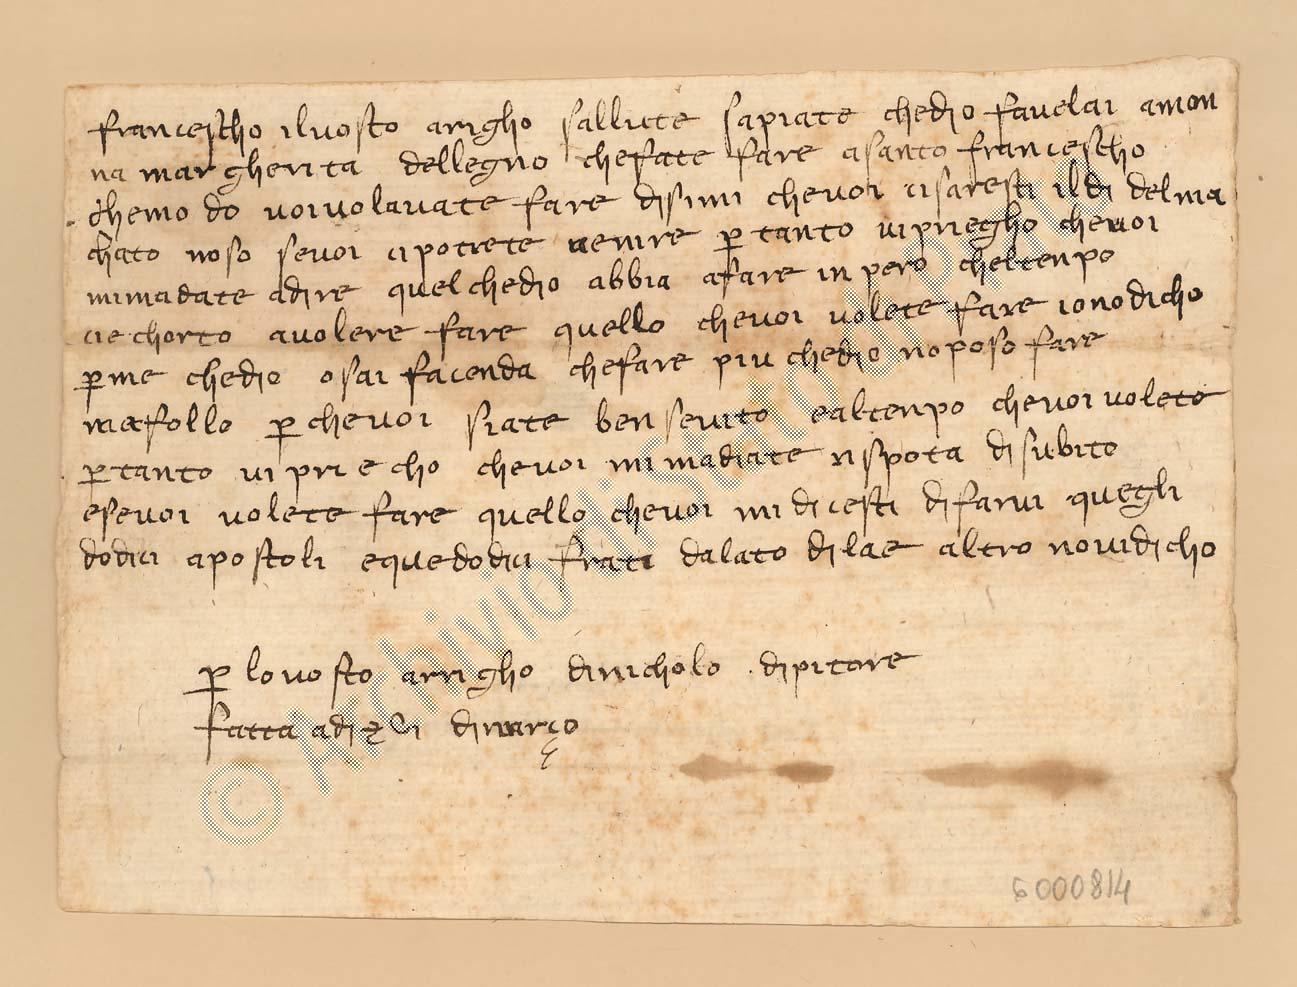 francescho ilvosto arigho sallute sapiate chedio favelai amon
na margherita dellegno chefate fare asanto francescho
chemo do voivolavate fare disimi chevoi cisaresti ildi delma
chato noso sevoi cipotrete venire p tanto vipriegho chevoi
mimadate adire quelchedio abbia afare inpero cheltenpo
cie chorto avolere fare quello chevoi volete fare ionodicho
p me chedio osai facenda chefare piu chedio noposo fare
mafollo p chevoi siate ben servito ealtenpo chevoi volete
p tanto vi priecho chevoi mimadiate rispota disubito
esevoi volete fare quello chevoi mi dicesti difarvi quegli
dodici apostoli equedodici frati dalato dilae altro novidicho
p lovosto arrigho dinicholo dipitore
fatta adi di março
6000814
© Archivio di Stato di Prato